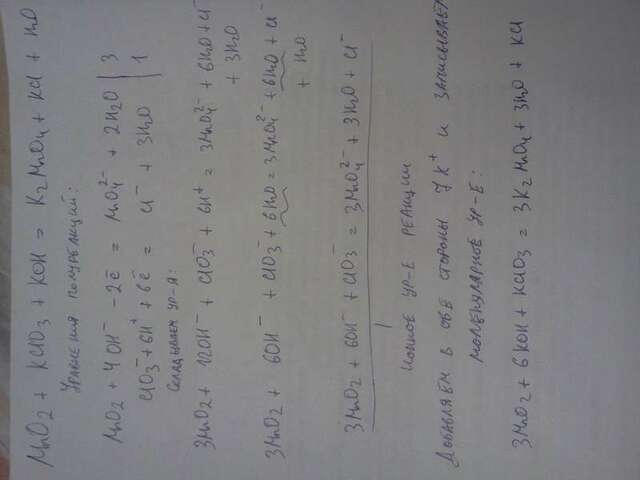 MnO2 + KClO3 + KOH = K2MnO4 + KCl + H2O
Уравнения полуреакций:
MnO2 + 4OH⁻ - 2ē = MnO4²⁻ + 2H2O | 3
ClO3⁻ + 6H⁺ + 6ē = Cl⁻ + 3H2O | 1
Складываем ур-я:
3MnO2 + 12OH⁻ + ClO3⁻ + 6H⁺ = 3MnO4²⁻ + 6H2O + Cl⁻
+ 3H2O
3MnO2 + 6OH⁻ + ClO3⁻ + 6H2O = 3MnO4²⁻ + 6H2O + Cl⁻
+ H2O
3MnO2 + 6OH⁻ + ClO3⁻ = 3MnO4²⁻ + 3H2O + Cl⁻
ионное ур-е реакции
Добавляем в обе стороны 7K⁺ и записывает
молекулярное ур-е:
3MnO2 + 6KOH + KClO3 = 3K2MnO4 + 3H2O + KCl